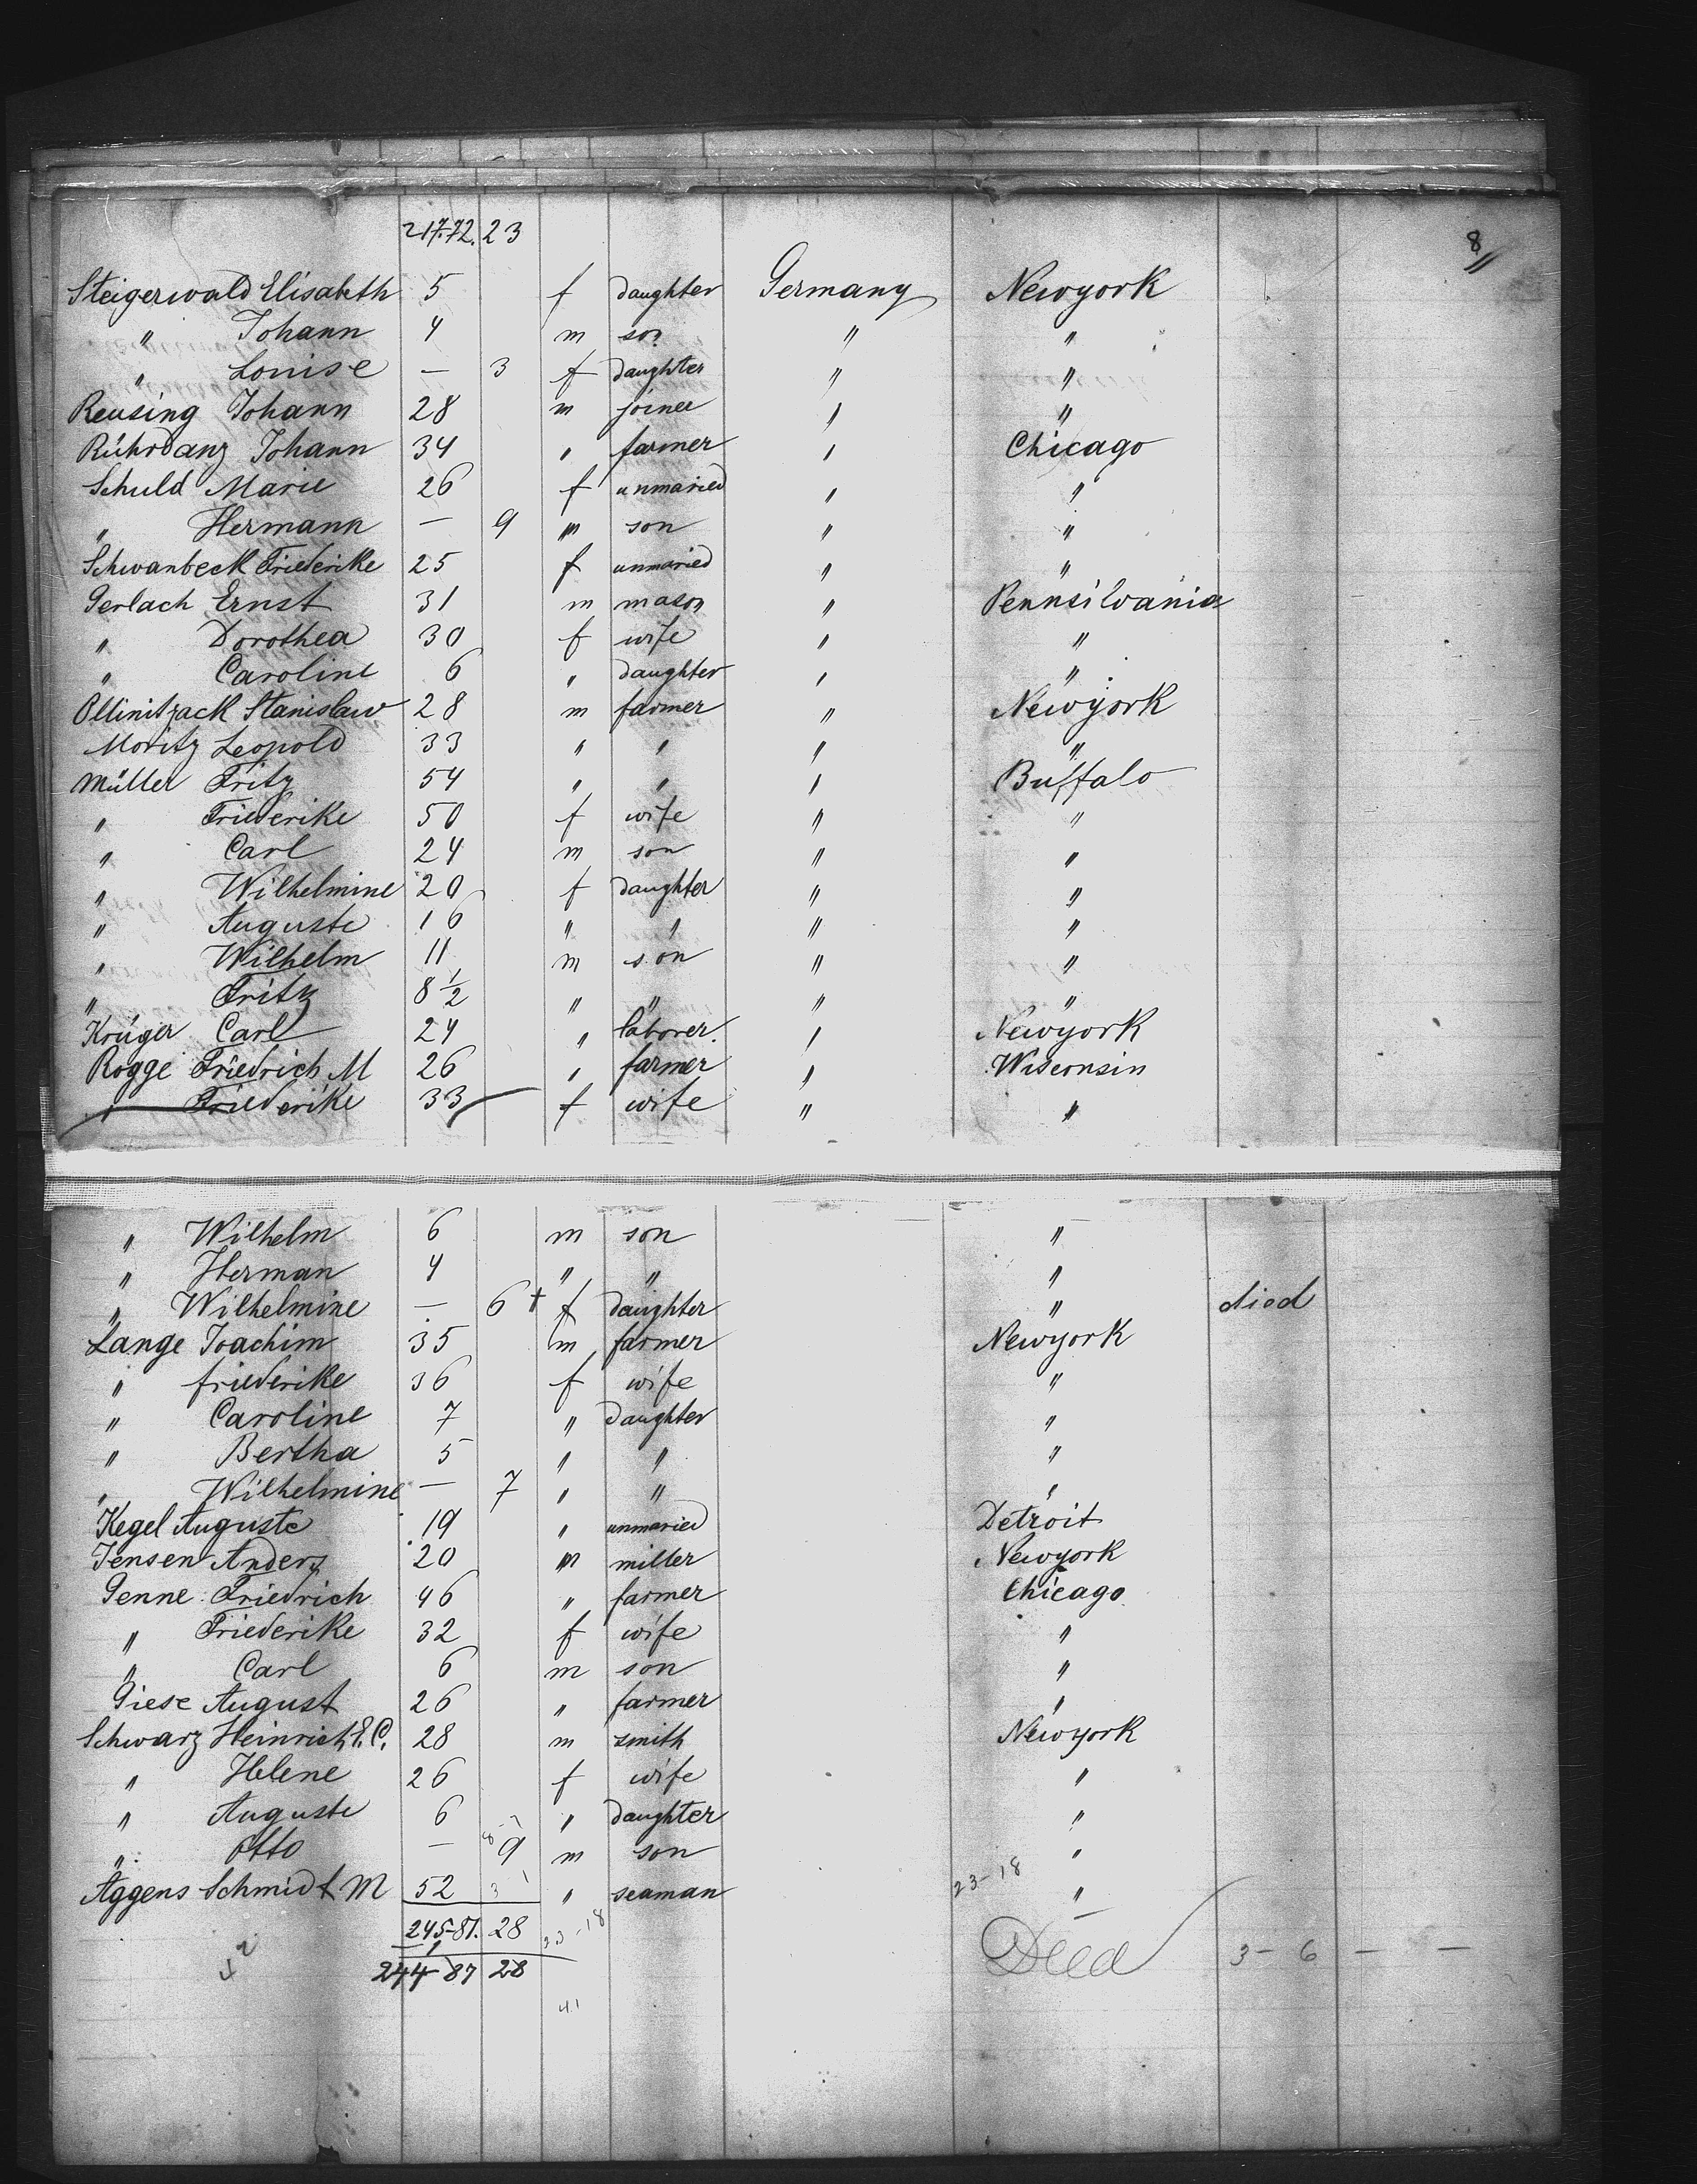 217. 72. 23
8
Steigerwald Elisabeth 5 f daughter Germany Newyork
" Johann 4 m son " "
" Louise — 3 f daughter " "
Reusing Johann 28 m joiner " "
Rührdanz Johann 34 " farmer " Chicago
Schuld Marie 26 f unmaried " "
" Hermann — 9 m son " "
Schwanbeck Friederike 25 f unmaried " "
Gerlach Ernst 31 m mason " Pennsilvania
" Dorothea 30 f wife " "
" Caroline 6 " daughter " "
Ollinitzack Stanislaw 28 m farmer " Newyork
Moritz Leopold 33 " " " "
Müller Fritz 54 " " " Buffalo
" Friederike 50 f wife " "
" Carl 24 m son " "
" Wilhelmine 20 f daughter " "
" Auguste 16 " " " "
" Wilhelm 11 m son " "
" Fritz 8 1/2 " " " "
Krüger Carl 24 " laborer. " Newyork
Rogge Friedrich M 26 " farmer " Wisconsin
" Friederike 33 f wife " "
" Wilhelm 6 m son "
" Herman 4 " " "
" Wilhelmine — 6 + f daughter " died
Lange Joachim 35 m farmer Newyork
" friederike 36 f wife "
" Caroline 7 " daughter "
" Bertha 5 " " "
" Wilhelmine — 7 " " "
Kegel Auguste 19 " unmaried Detroit
Jensen Anders 20 m miller Newyork
Genne Friedrich 46 " farmer Chicago
" Friederike 32 f wife "
" Carl 6 m son "
Giese August 26 " farmer "
Schwarz Heinrich E. C. 28 m smith Newyork
" Helene 26 f wife "
" Auguste 6 " daughter "
" Otto — 9 m son "
Aggens Schmidt M 52 " seaman 23-18 "
245-87. 28 23-18
1
244 87 28 Died 3- 6 — —
41